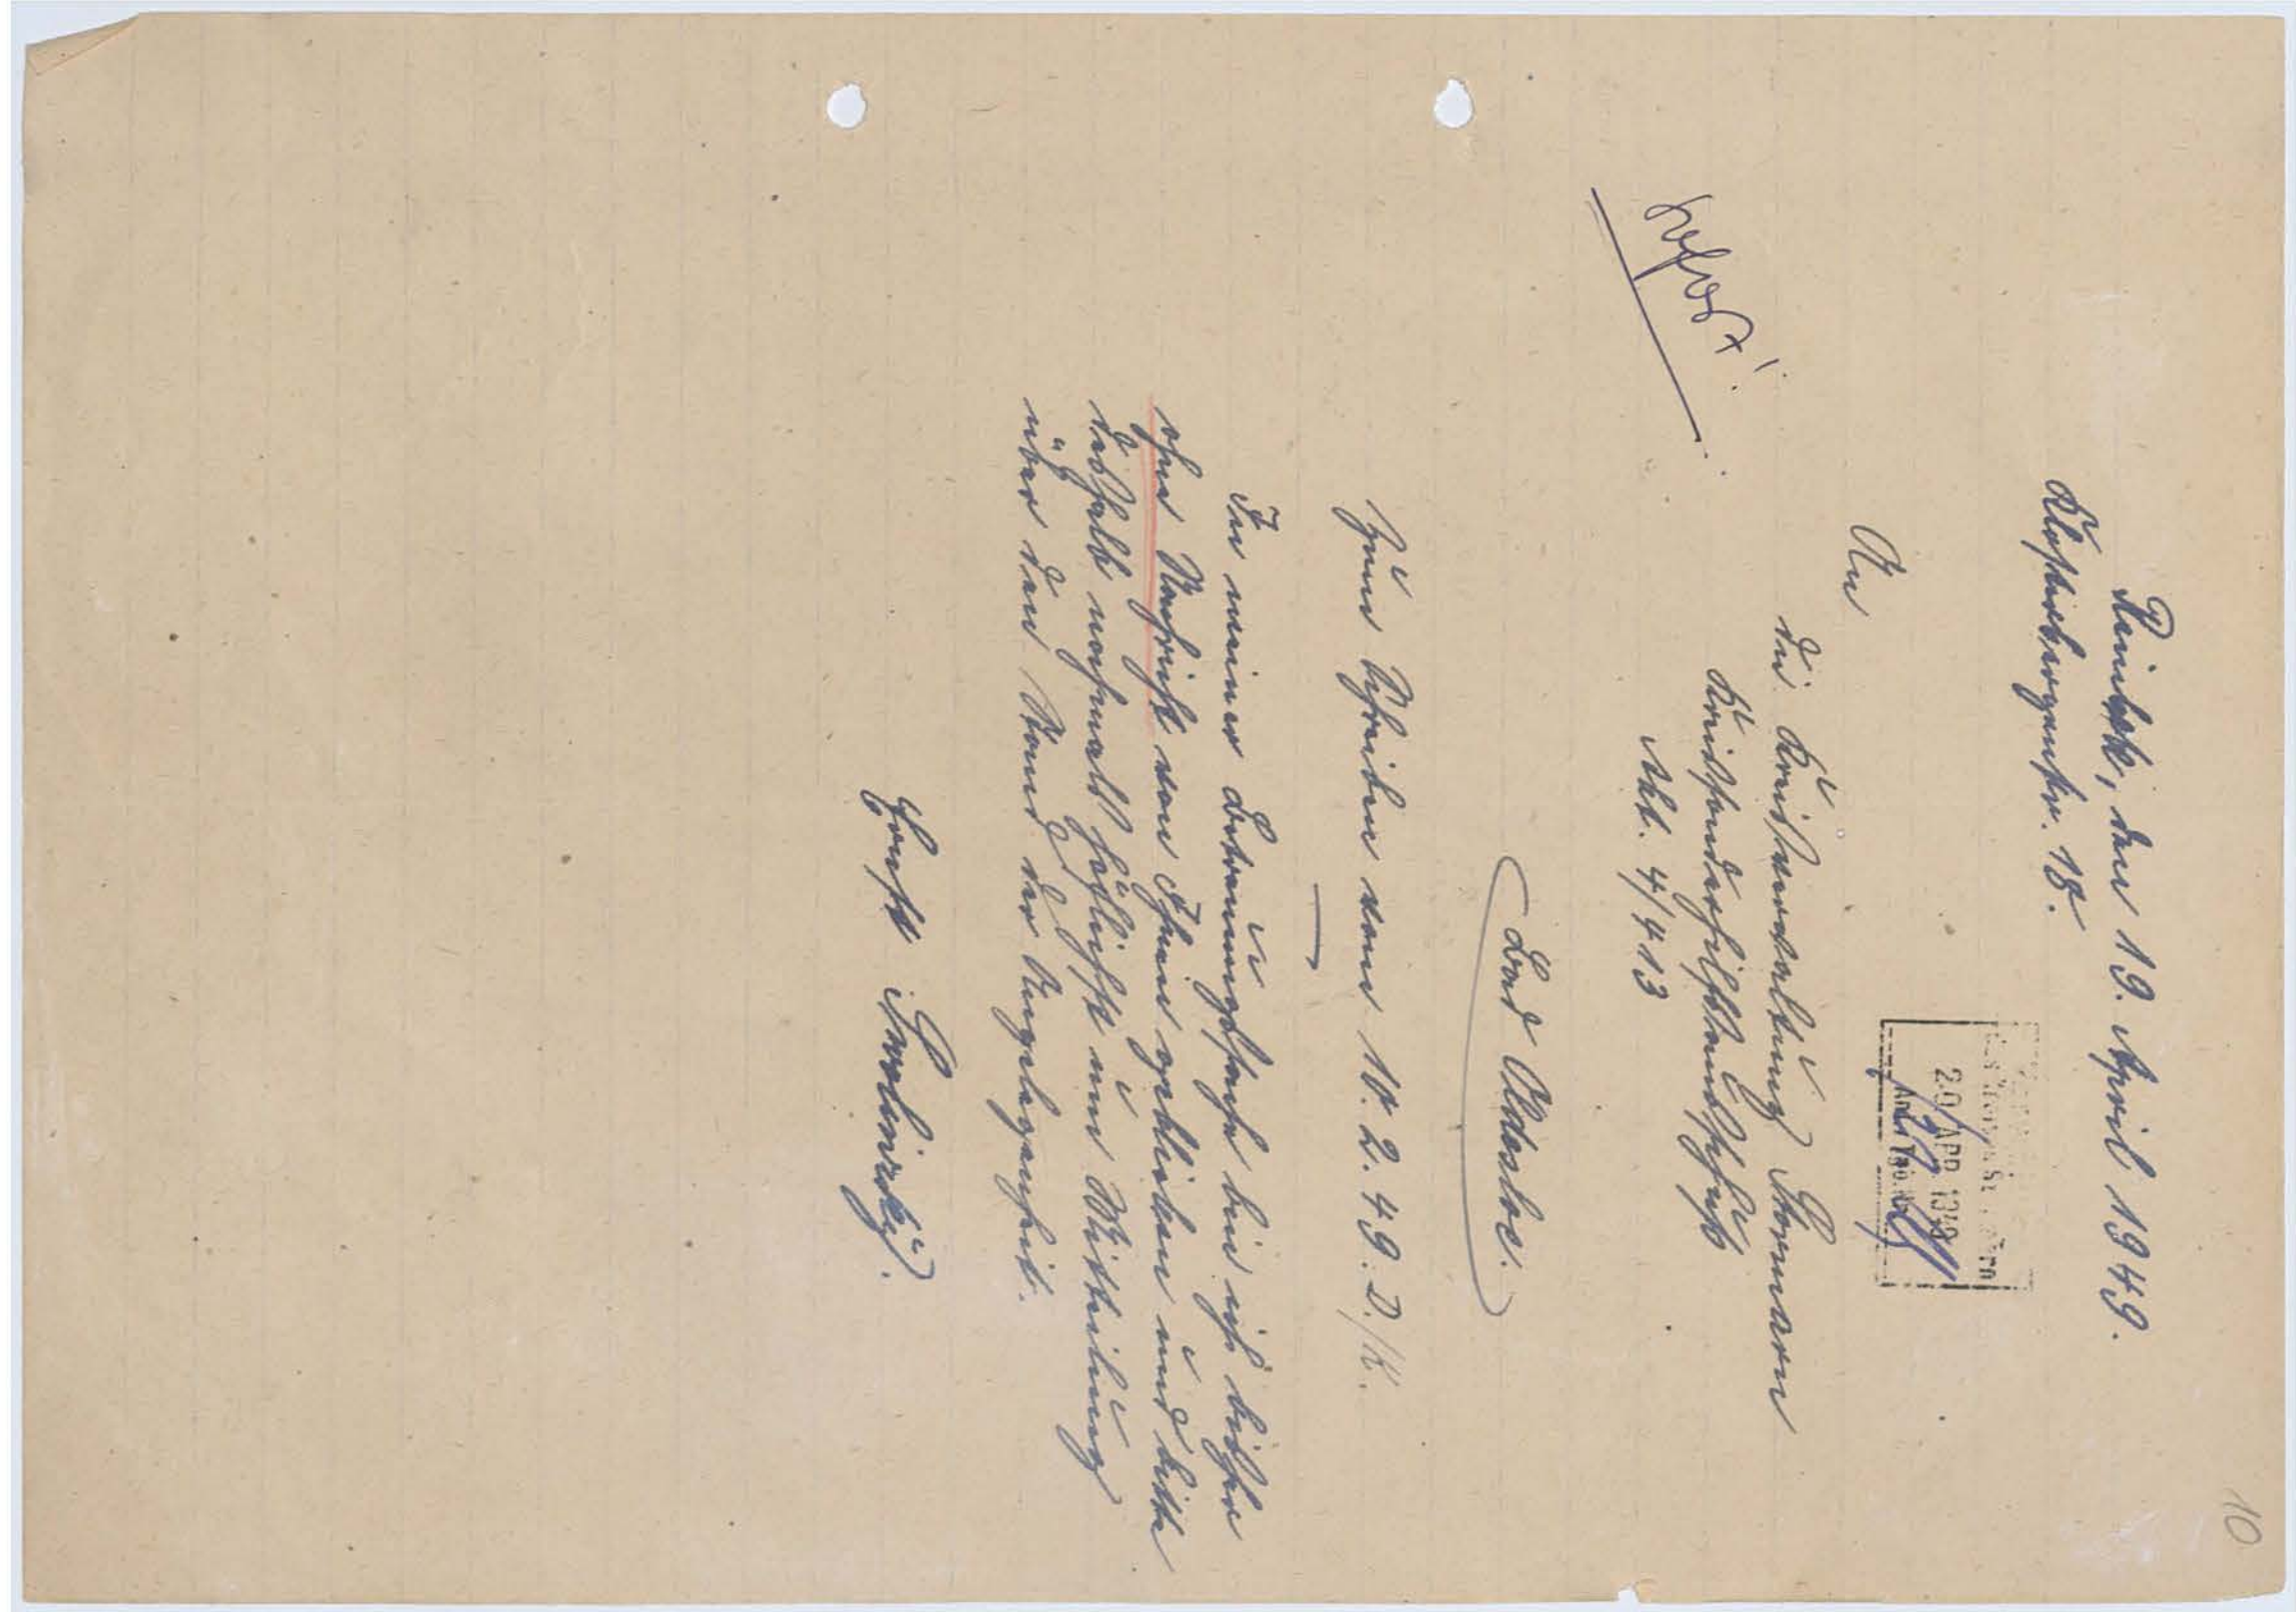 10
Reinbek, den 19. April 1949.
Klosterbergenstr. 18.
20. APR. 1949
An
die Kreisverwaltung Stormarn
Kreissonderhilfsausschuß
Abt. 4/413
Bad Oldesloe.
Zum Schreiben vom 10.2.49. D./K.
In meiner Betreuungssache bin ich bisher
ohne Nachricht von Ihnen geblieben und bitte
deshalb nochmals höflichst um Mitteilung
über den Stand der Angelegenheit.